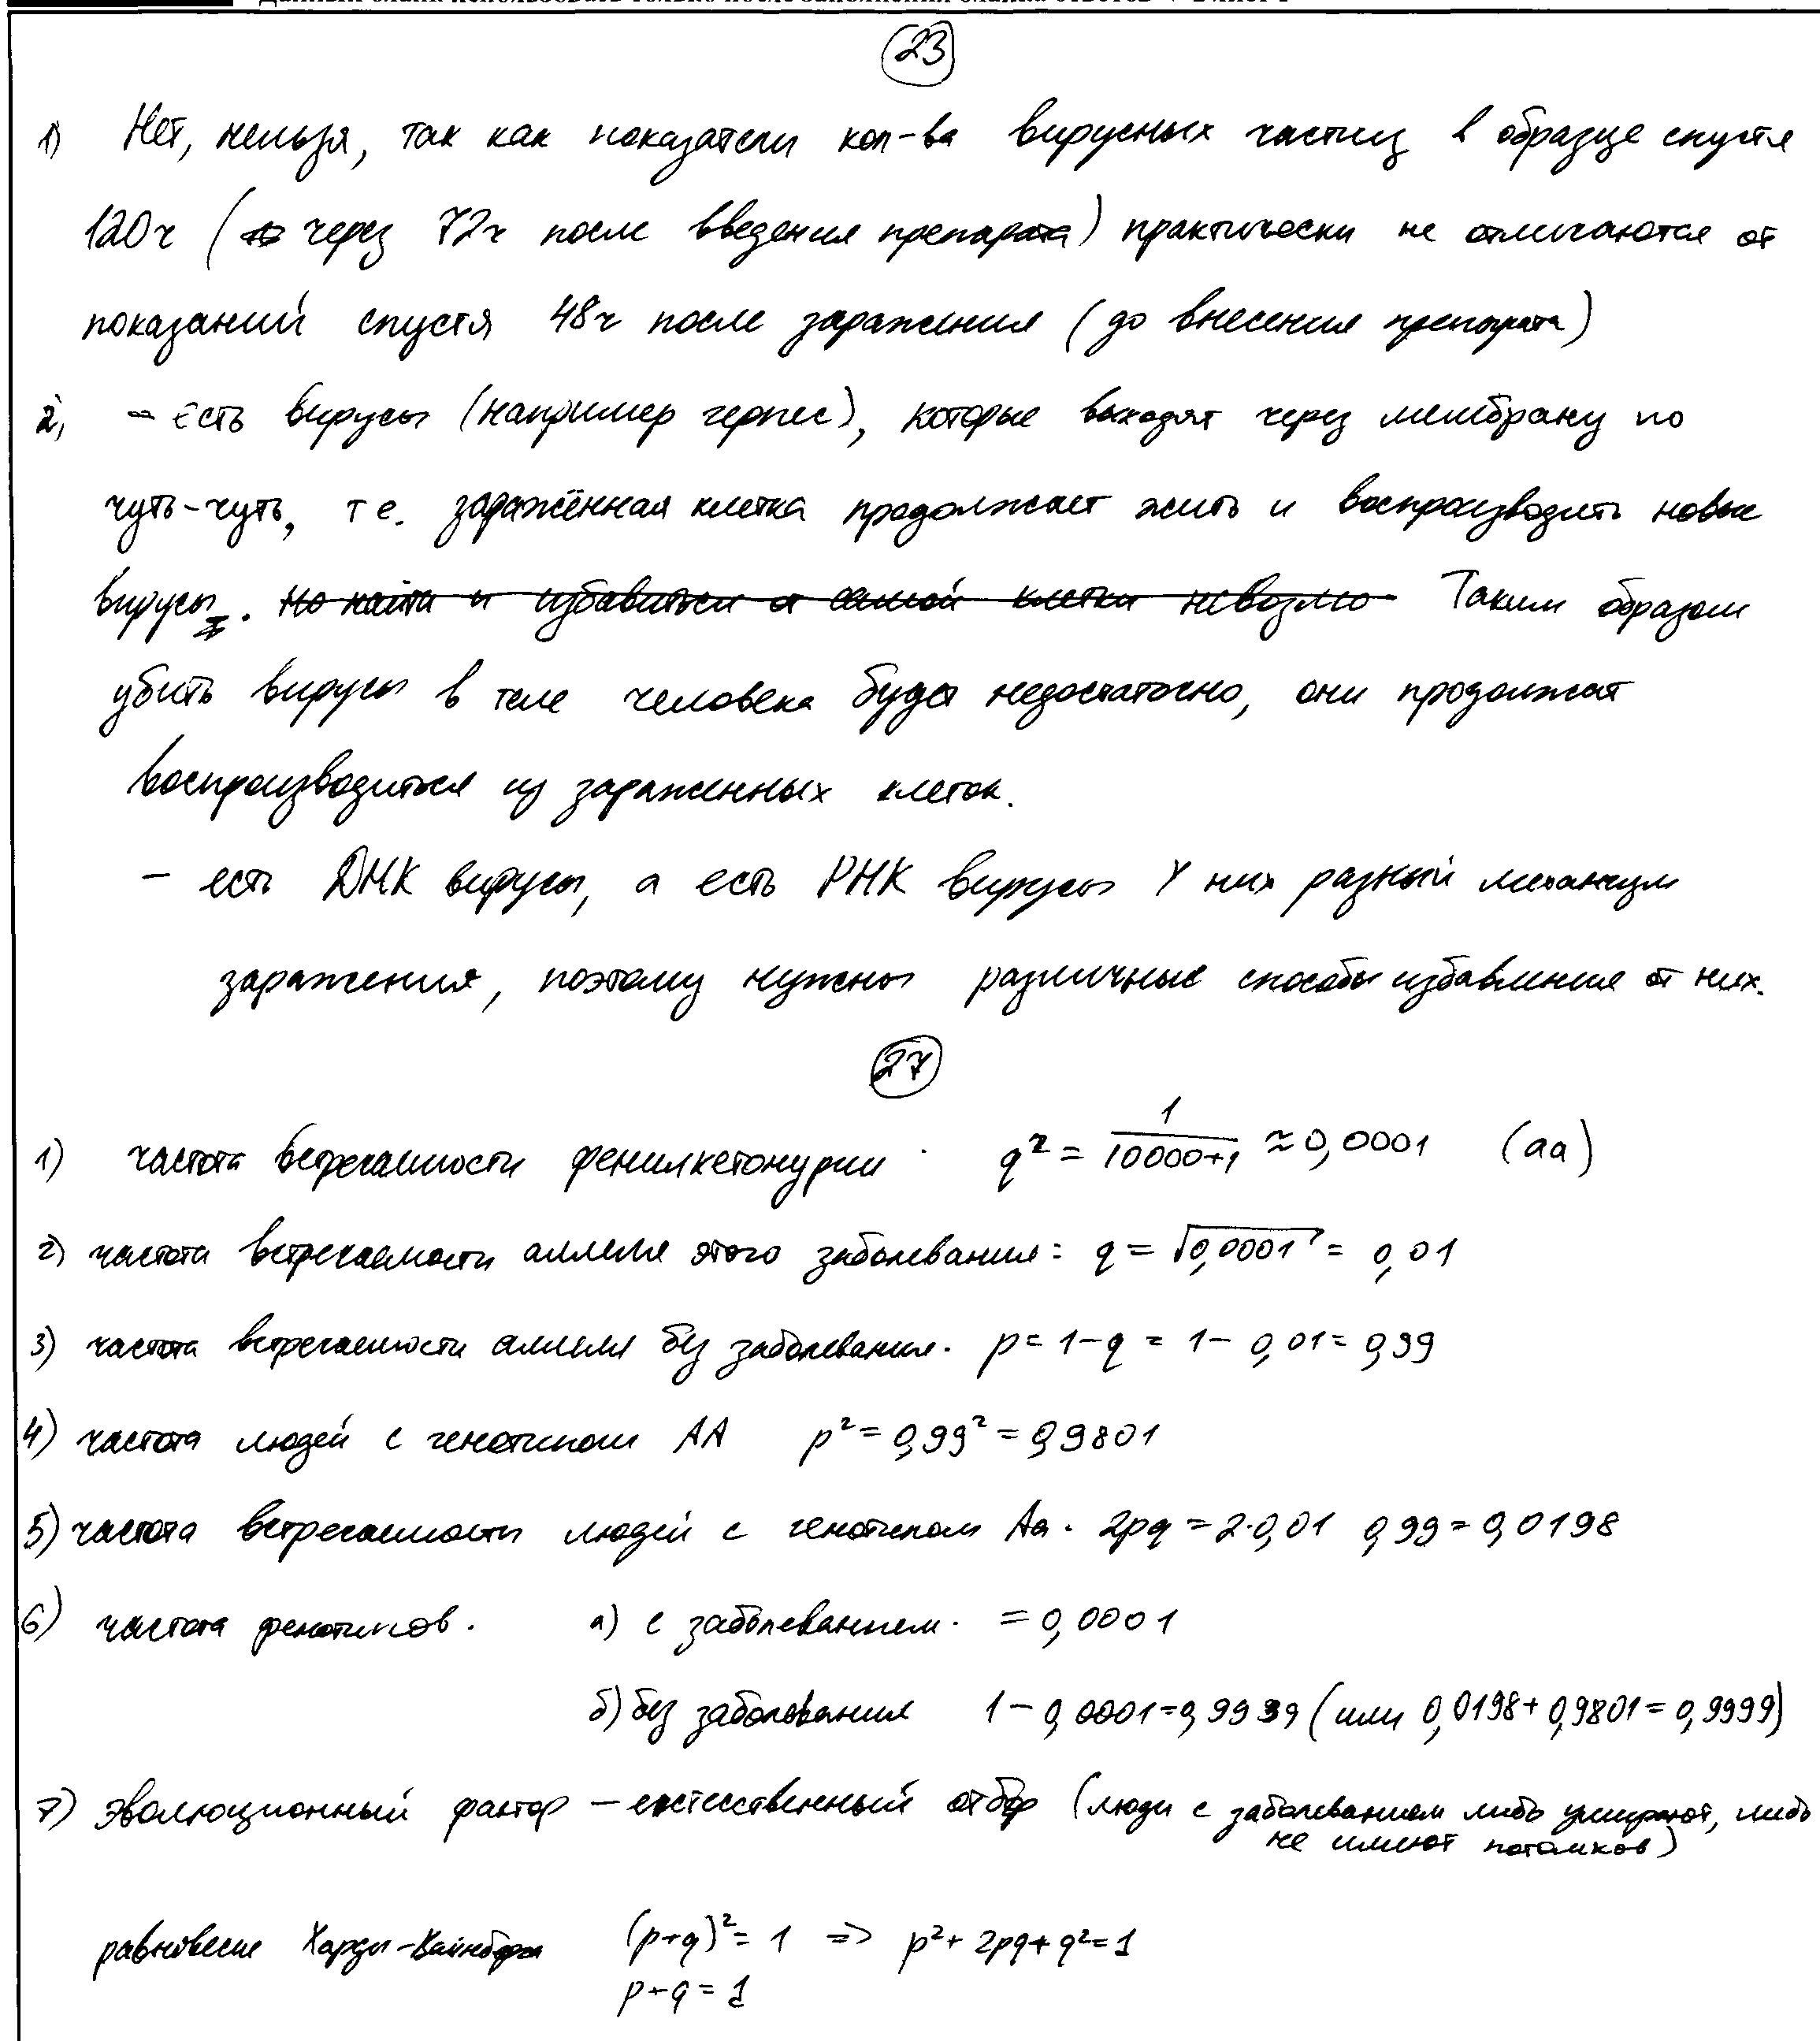 23
1) Нет, нельзя, так как показатели кол-ва вирусных частиц в образце спустя
120ч ( через 72ч после введения препарата) практически не отличаются от
показаний спустя 48ч после заражения (до внесения препарата)
2, - Есть вирусы (например герпес), которые выходят через мембрану по
чуть-чуть, т е. заражённая клетка продолжает жить и воспроизводить новые
вирусы. Но найти и избавиться от самой клетки невозмо Таким образом
убить вирусы в теле человека будет недостаточно, они продолжат
воспроизводиться из зараженных клеток.
- есть ДНК вирусы, а есть РНК вирусы У них разный механизм
заражения, поэтому нужны различные способы избавления от них.
27
1) частота встречаемости фенилкетонурии q² = 1/(10000+1) ≈ 0,0001 (аа)
2) частота встречаемости аллеля этого заболевания: q = √0,0001 = 0,01
3) частота встречаемости аллеля без заболевания. p = 1-q = 1- 0,01 = 0,99
4) частота людей с генотипом АА p² = 0,99² = 0,9801
5) частота встречаемости людей с генотипом Аа. 2pq = 2·0,01 0,99 = 0,0198
6) частота фенотипов. а) с заболеванием. = 0,0001
б) без заболевания 1 - 0,0001 = 0,9999 (или 0,0198 + 0,9801 = 0,9999)
7) эволюционный фактор – естесственный отбор (люди с заболеванием либо умирают, либо
не имеют потомков)
равновесие Харди-Вайнберга (p+q)² = 1 => p² + 2pq + q² = 1
p+q = 1